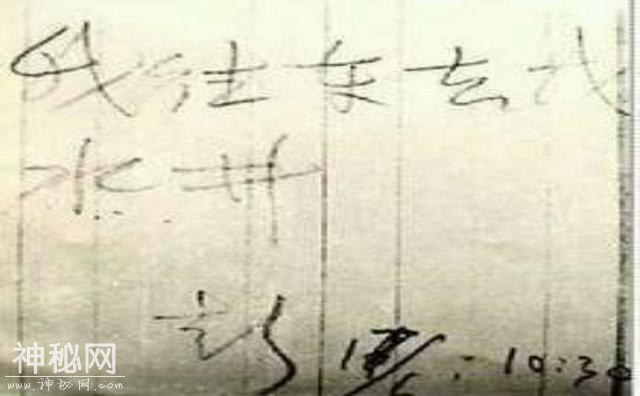 我往东去找
水井
彭 17/6:10:30
神秘网
www.神秘网.com